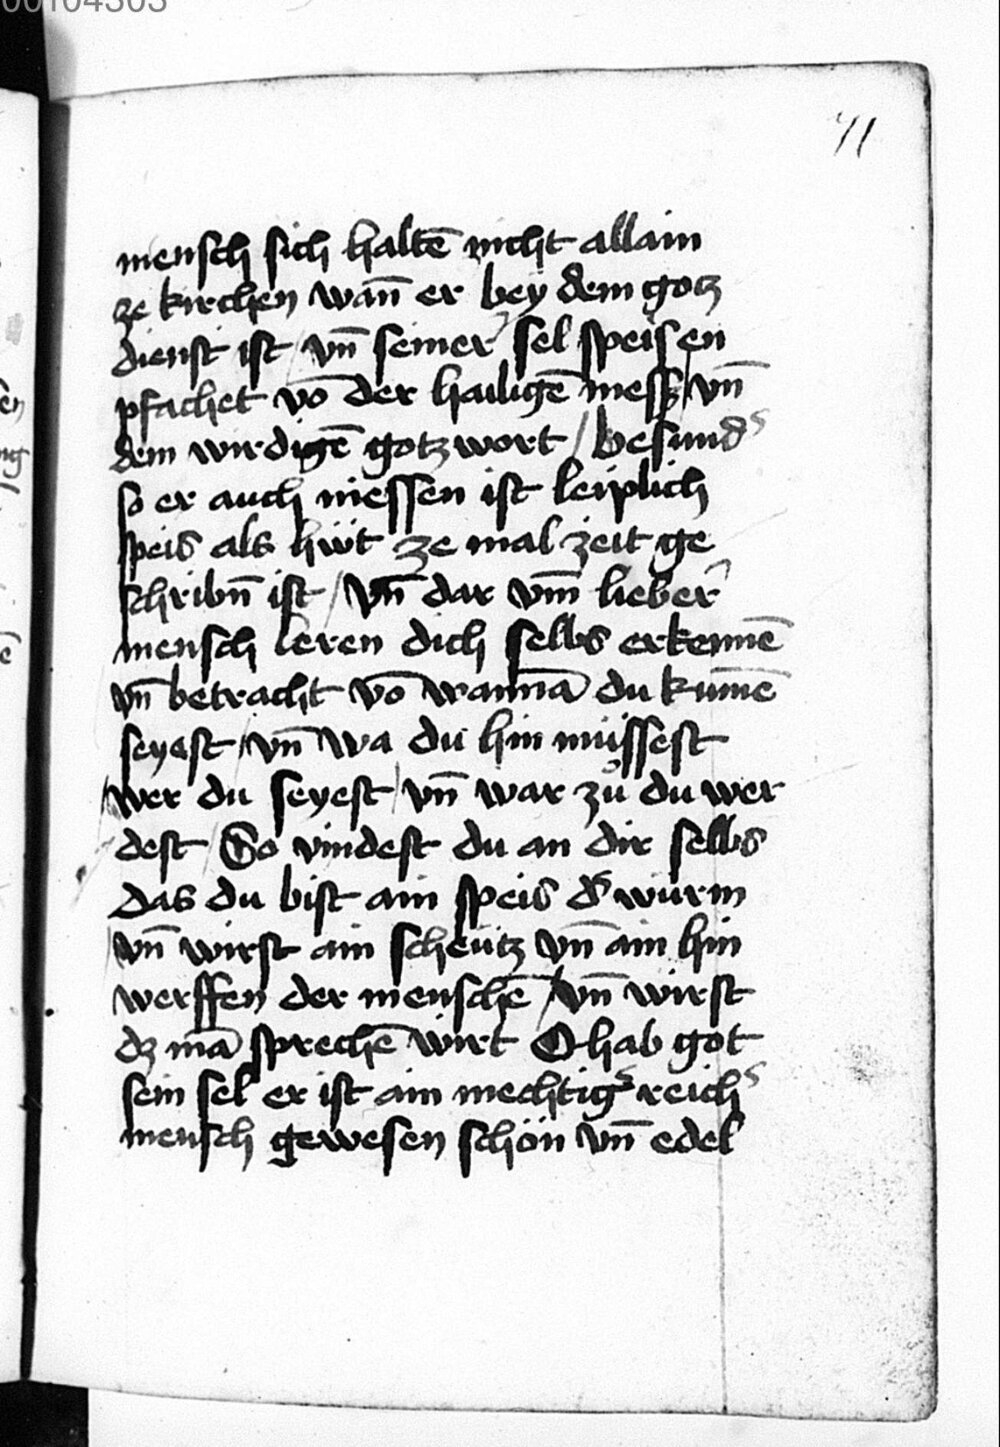 00104303
71
mensch sich haltē nicht allain
ze kirchen wan̄ er bey dem gotz
dienst ist / vn̄ seiner sel speis en
pfachet vō der hailigē mess / vn̄
dem wirdigē gotz wort / besund͛s
so er auch niessen ist leiplich
speis als hw̎t ze mal zeit ge
schribn̄ ist / vn̄ dar vm̄ lieber
mensch leren dich selbs erkennē
vn̄ betracht vō wannā du kumē
seyest / vn̄ wa du hin müssest
wer du seyest / vn̄ war zů du wer
dest So vindest du an dir selbs
das du bist ain speis d͛ würm
vn̄ wirst ain scheütz vn̄ ain hin
werffen der menschē / vn̄ wirst
dz mā sprechē wirt O hab got
sein sel er ist ain mechtig͛ reich͛
mensch gewesen schön vn̄ edel